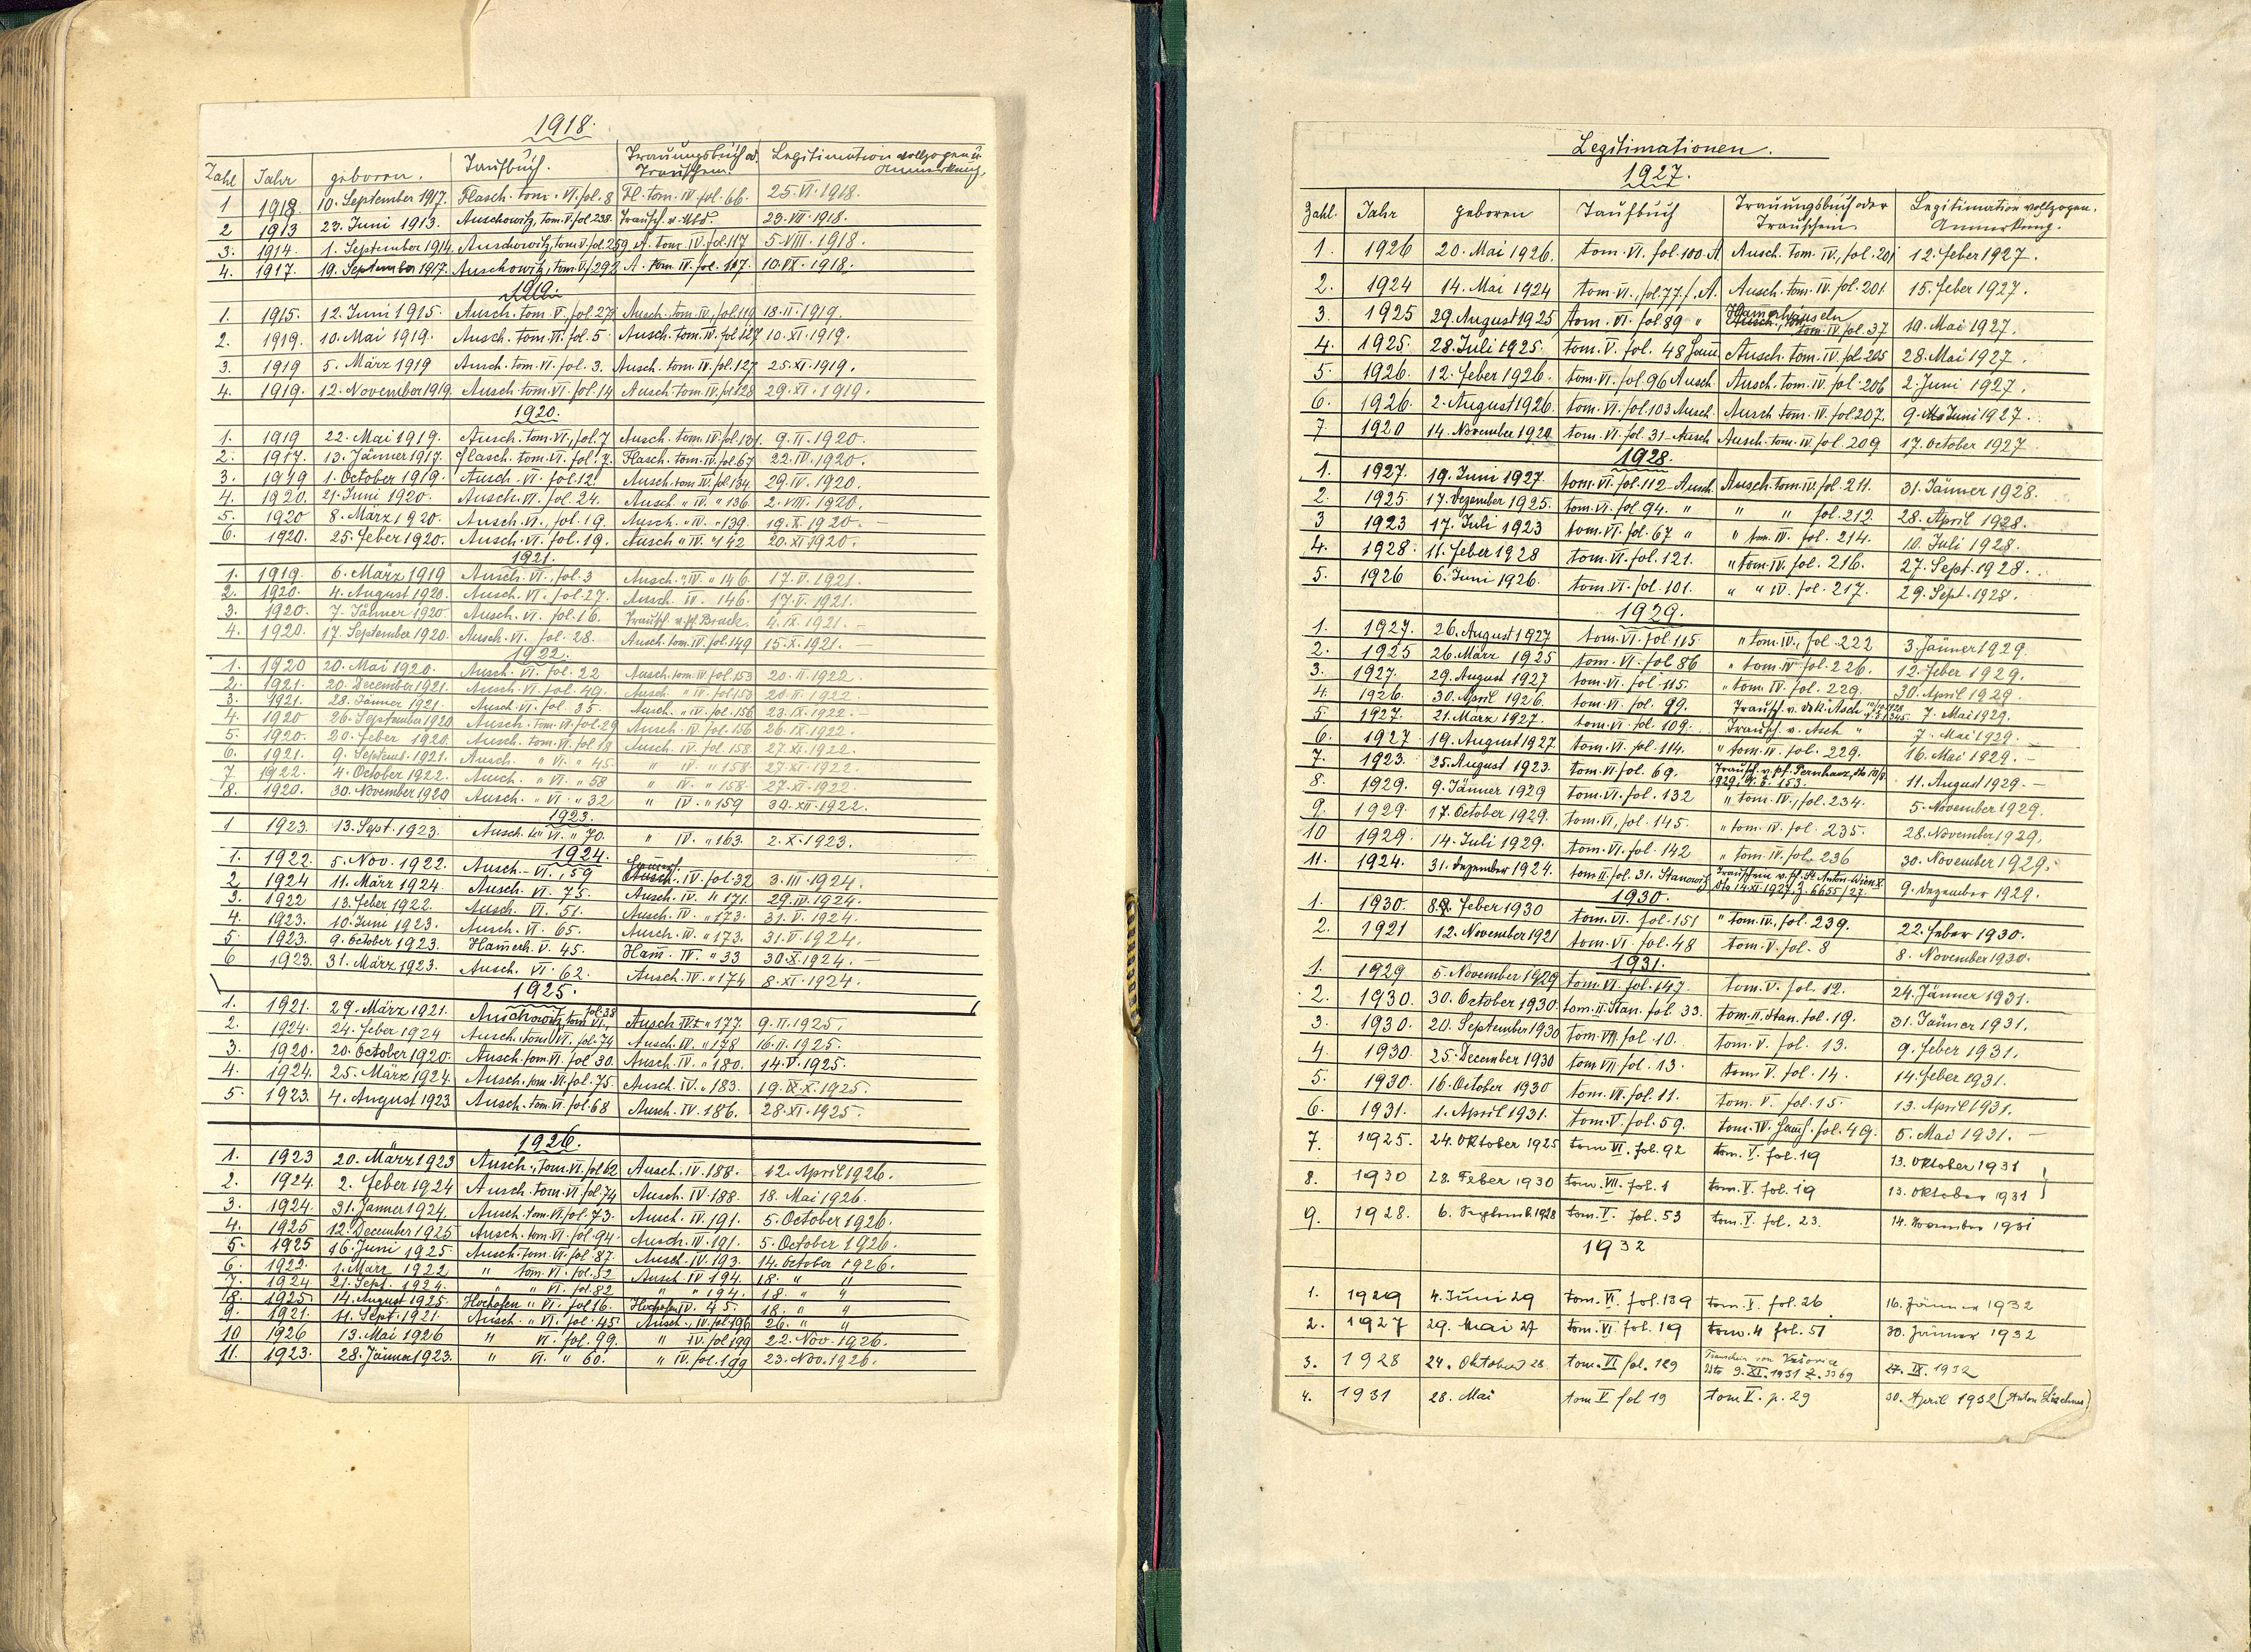 1918.
Zahl Jahr geboren. Taufbuch. Trauungsbuch od. Trauschein. Legitimation vollzogen u. Anmerkung.
1 1918. 10. September 1917. Flasch. tom. VI. fol. 8 Fl. tom. IV. fol. 66. 25. VI. 1918.
2 1913 23. Juni 1913. Auschowitz, tom. V. fol. 238. Trausch. v. 23. VII. 1918.
3. 1914. 1. September 1914. Auschowitz, tom. V. fol. 259 A. tom. IV. fol. 117 5. VIII. 1918.
4. 1917. 19. September 1917. Auschowitz, tom. V. f. 292 A. tom. IV. fol. 117. 10. VI. 1918.
1919.
1. 1915. 12. Juni 1915. Ausch. tom. V. fol. 27 Ausch. tom. IV. fol. 119 18. II. 1919.
2. 1919. 10. Mai 1919. Ausch. tom. VI. fol. 5 Ausch. tom. IV. fol. 127 10. XI. 1919.
3. 1919 5. März 1919 Ausch. tom. VI. fol. 3. Ausch. tom. IV. fol. 127 25. XI. 1919.
4. 1919. 12. November 1919. Ausch. tom. VI. fol. 14 Ausch. tom. IV. fol. 128 29. XI. 1919.
1920.
1. 1919 22. Mai 1919. Ausch. tom. VI., fol. 7 Ausch. tom. IV. fol. 131. 9. II. 1920.
2. 1917. 13. Jänner 1917. Flasch. tom. VI. fol. 7. Flasch. tom. IV. fol. 67 22. IV. 1920.
3. 1919 1. October 1919. Ausch. VI. fol. 12. Ausch. tom. IV. fol. 134. 29. IV. 1920.
4. 1920. 21. Juni 1920. Ausch. VI. fol. 24. Ausch. " IV. " 136. 2. VIII. 1920.
5. 1920 8. März 1920. Ausch. VI., fol. 19. Ausch. " IV. " 139. 19. X. 1920. –
6. 1920. 25. Feber 1920. Ausch. VI. fol. 19. Ausch " IV. " 142 20. XI. 1920.
1921.
1. 1919. 6. März 1919 Ausch. VI. fol. 3 Ausch. " IV. " 146. 17. V. 1921.
2. 1920. 4. August 1920. Ausch. VI. fol. 27. Ausch. IV. 146. 17. V. 1921.
3. 1920. 7. Jänner 1920 Ausch. VI. fol. 16. Trausch. v. pf. Bruck. 4. IX. 1921. –
4. 1920. 17. September 1920. Ausch. VI. fol. 28. Ausch. tom. IV. fol. 149 15. X. 1921. –
1922.
1. 1920 20. Mai 1920. Ausch. VI. fol. 22 Ausch. tom. IV. fol. 153 20. II. 1922.
2. 1921. 20. December 1921. Ausch. VI. fol. 49. Ausch. " IV. fol. 153 20. II. 1922.
3. 1921. 28. Jänner 1921. Ausch. VI. fol. 35. Ausch. " IV. fol. 156 23. IX. 1922. –
4. 1920 26. September 1920 Ausch. tom. VI. fol. 29 Ausch. IV. fol. 156 26. IX. 1922.
5. 1920. 20. Feber 1920. Ausch. tom. VI. fol. 18 Ausch. IV. fol. 158 27. XI. 1922.
6. 1921. 9. Septemb. 1921. Ausch. " VI. " 45 " IV. " 158 27. XI. 1922.
7 1922. 4. October 1922. Ausch. " VI. " 58 " IV. " 158. 27. XI. 1922.
8. 1920. 30. November 1920 Ausch. " VI. " 32 " IV. " 159 30. XII. 1922.
1923.
1 1923. 13. Sept. 1923. Ausch. tom VI. " 70. " IV. " 163. 2. X. 1923.
1924.
1. 1922. 5. Nov. 1922. Ausch. – VI. , 59 IV. fol. 32 3. III. 1924.
2 1924 11. März 1924. Ausch. VI. 75. Ausch. IV. " 171. 29. IV. 1924.
3. 1922 13. Feber 1922. Ausch. VI. 51. Ausch. IV. " 173. 31. V. 1924.
4. 1923. 10. Juni 1923. Ausch. VI. 65. Ausch. IV. " 173. 31. V. 1924.
5. 1923. 9. October 1923. Hamerh. V. 45. Ham. IV. " 33 30. X. 1924. –
6 1923. 31. März 1923. Ausch. VI. 62. Ausch. IV. " 174 8. XI. 1924.
1925.
1. 1921. 29. März 1921. Auschowitz, tom VI., fol. 38 Ausch. IV. " 177. 9. II. 1925.
2. 1924. 24. Feber 1924 Ausch. tom VI. fol. 74 Ausch. IV. " 178 16. II. 1925.
3. 1920. 20. October 1920. Ausch. tom. VI. fol. 30. Ausch. IV. " 180. 14. V. 1925.
4. 1924. 25. März 1924. Ausch. tom. VI. fol. 75. Ausch. IV. " 183. 19. IX. X. 1925.
5. 1923. 4. August 1923 Ausch. tom. VI. fol. 68 Ausch. IV. 186. 28. XI. 1925.
1926.
1. 1923 20. März 1923 Ausch., tom. VI. fol. 62 Ausch. IV. 188. 12. April 1926.
2. 1924. 2. Feber 1924 Ausch. tom. VI. fol. 74 Ausch. IV. 188. 18. Mai 1926.
3. 1924. 31. Jänner 1924. Ausch. tom. VI. fol. 73. Ausch. IV. 191. 5. October 1926.
4. 1925 12. December 1925 Ausch. tom. VI. fol. 94. Ausch. IV. 191. 5. October 1926.
5. 1925 16. Juni 1925. Ausch. tom. VI. fol. 87. Ausch. IV. 193. 14. October 1926.
6. 1922. 1. März 1922 " tom. VI. fol. 52 Ausch. IV. 194. 18. " "
7. 1924. 21. Sept. 1924. " " VI. fol. 82 " " 194. 18. " "
8. 1925. 14. August 1925. Hochofen " VI. fol. 16. Hochofen IV. 45. 18. " "
9. 1921. 11. Sept. 1921 Ausch. " VI. fol. 45 Ausch. , IV. fol. 196 26. " "
10 1926 13. Mai 1926 " VI. fol. 99. " IV. fol. 199 22. Nov. 1926.
11. 1923. 28. Jänner 1923. " VI. " 60. " IV. fol. 199 23. Nov. 1926.
Legitimationen.
1927.
Zahl. Jahr geboren Taufbuch Trauungsbuch oder Trauschein. Legitimation vollzogen. Anmerkung.
1. 1926 20. Mai 1926. tom. VI. fol. 100. A Ausch. tom. IV., fol. 201 12. Feber 1927.
2. 1924 14. Mai 1924 tom. VI., fol. 77. f. A. Ausch. tom. IV. fol. 201 15. Feber 1927.
3. 1925 29. August 1925 tom. VI. fol 89 " Hamerhäuseln tom. IV. fol. 37 19. Mai 1927.
4. 1925. 28. Juli 1925. tom. V. fol. 48 Ham. Ausch. tom. IV. fol. 205 28. Mai 1927.
5. 1926. 12. Feber 1926. tom. VI. fol. 96 Ausch. Ausch. tom. IV. fol. 206 2. Juni 1927.
6. 1926. 2. August 1926. tom. VI. fol. 103 Ausch. Ausch tom. IV. fol. 207. 9. Juni 1927.
7 1920 14. November 1920 tom. VI. fol. 31 – Ausch Ausch. tom. IV. fol. 209 17. October 1927
1928.
1. 1927. 19. Juni 1927. tom. VI. fol. 112 – Ausch. Ausch. tom. IV. fol. 211. 31. Jänner 1928.
2. 1925 17. Dezember 1925. tom. VI. fol. 94. " " " fol. 212. 28. April 1928.
3 1923 17. Juli 1923 tom. VI. fol. 67 " " tom. IV. fol. 214. 10. Juli 1928.
4. 1928. 11. Feber 1928 tom. VI. fol. 121. " tom. IV. fol. 216. 27. Sept. 1928.
5. 1926 6. Juni 1926. tom. VI. fol. 101. " " IV. fol. 217. 29. Sept. 1928.
1929.
1. 1927. 26. August 1927 tom. VI. fol. 115 " tom. IV., fol. 222 3. Jänner 1929.
2. 1925 26. März 1925 tom. VI. fol 86 " tom. IV. fol. 226. 12. Feber 1929.
3. 1927. 29. August 1927 tom. VI. fol. 115. " tom. IV. fol. 229. 30. April 1929.
4. 1926. 30. April 1926. tom. VI. fol. 99. Trausch. v. Asch 7. Mai 1929.
5 1927. 21. März 1927. tom. VI. fol. 109. Trausch. v. Asch " 7. Mai 1929. –
6. 1927 19. August 1927. tom. VI. fol. 114. " tom. IV. fol. 229. 16. Mai 1929. –
7. 1923. 25. August 1923. tom. VI. fol. 69. Trausch. v. pf. Pernharz, dto 18/8 1929, Z. 153. 11. August 1929. –
8. 1929. 9. Jänner 1929 tom. VI. fol. 132 " tom. IV., fol. 234. 5. November 1929.
9. 1929. 17. October 1929. tom. VI, fol. 145. " tom. IV. fol. 235. 28. November 1929.
10 1929. 14. Juli 1929. tom. VI. fol. 142 " tom. IV. fol. 236 30. November 1929.
11. 1924. 31. Dezember 1924. tom II. fol. 31. Stanowitz Trauschein v. pf. St. Anton Wien X. dto 14. XI. 1927, Z. 6655/27. 9. Dezember 1929.
1930.
1. 1930. 8. Feber 1930 tom. VI. fol. 151 " tom. IV., fol. 239. 22. Feber 1930.
2. 1921 12. November 1921 tom. VI. fol. 48 tom. V. fol. 8 8. November 1930.
1931.
1. 1929 5. November 1929 tom. VI. fol. 147 tom. V. fol. 12. 24. Jänner 1931.
2. 1930. 30. October 1930. tom. II. Stan. fol 33. tom. II. Stan. fol. 19. 31. Jänner 1931.
3. 1930. 20. September 1930 tom. VII. fol. 10. tom. V. fol. 13. 9. Feber 1931.
4. 1930. 25. December 1930 tom VII. fol. 13. tom. V. fol. 14. 14. Feber 1931.
5. 1930. 16. October 1930 tom. VII. fol. 11. tom. V. fol. 15. 13. April 1931.
6. 1931. 1. April 1931. tom. V. fol. 59. tom. IV. Ham. fol. 49. 5. Mai 1931. –
7. 1925. 24. Oktober 1925 tom VI. fol. 92 tom. V. fol. 19 13. Oktober 1931
8. 1930 28. Feber 1930 tom. VII. fol. 1 tom. V. fol. 19 13. Oktober 1931
9. 1928. 6. Septemb. 1928 tom. V. fol. 53 tom. V. fol. 23. 14. November 1931
1932
1. 1929 4. Juni 29 tom. VI. fol. 139 tom. V. fol. 26. 16. Jänner 1932
2. 1927 29. Mai 27 tom. VI. fol. 19 tom. 4 fol. 51 30. Jänner 1932
3. 1928 24. Oktober 28 tom. VI fol. 129 Trauschein von Vršovice dto 9. XI. 1931 Z. 3369 27. IX. 1932
4. 1931 28. Mai tom V fol 19 tom V. p. 29 30. April 1932 (Anton)